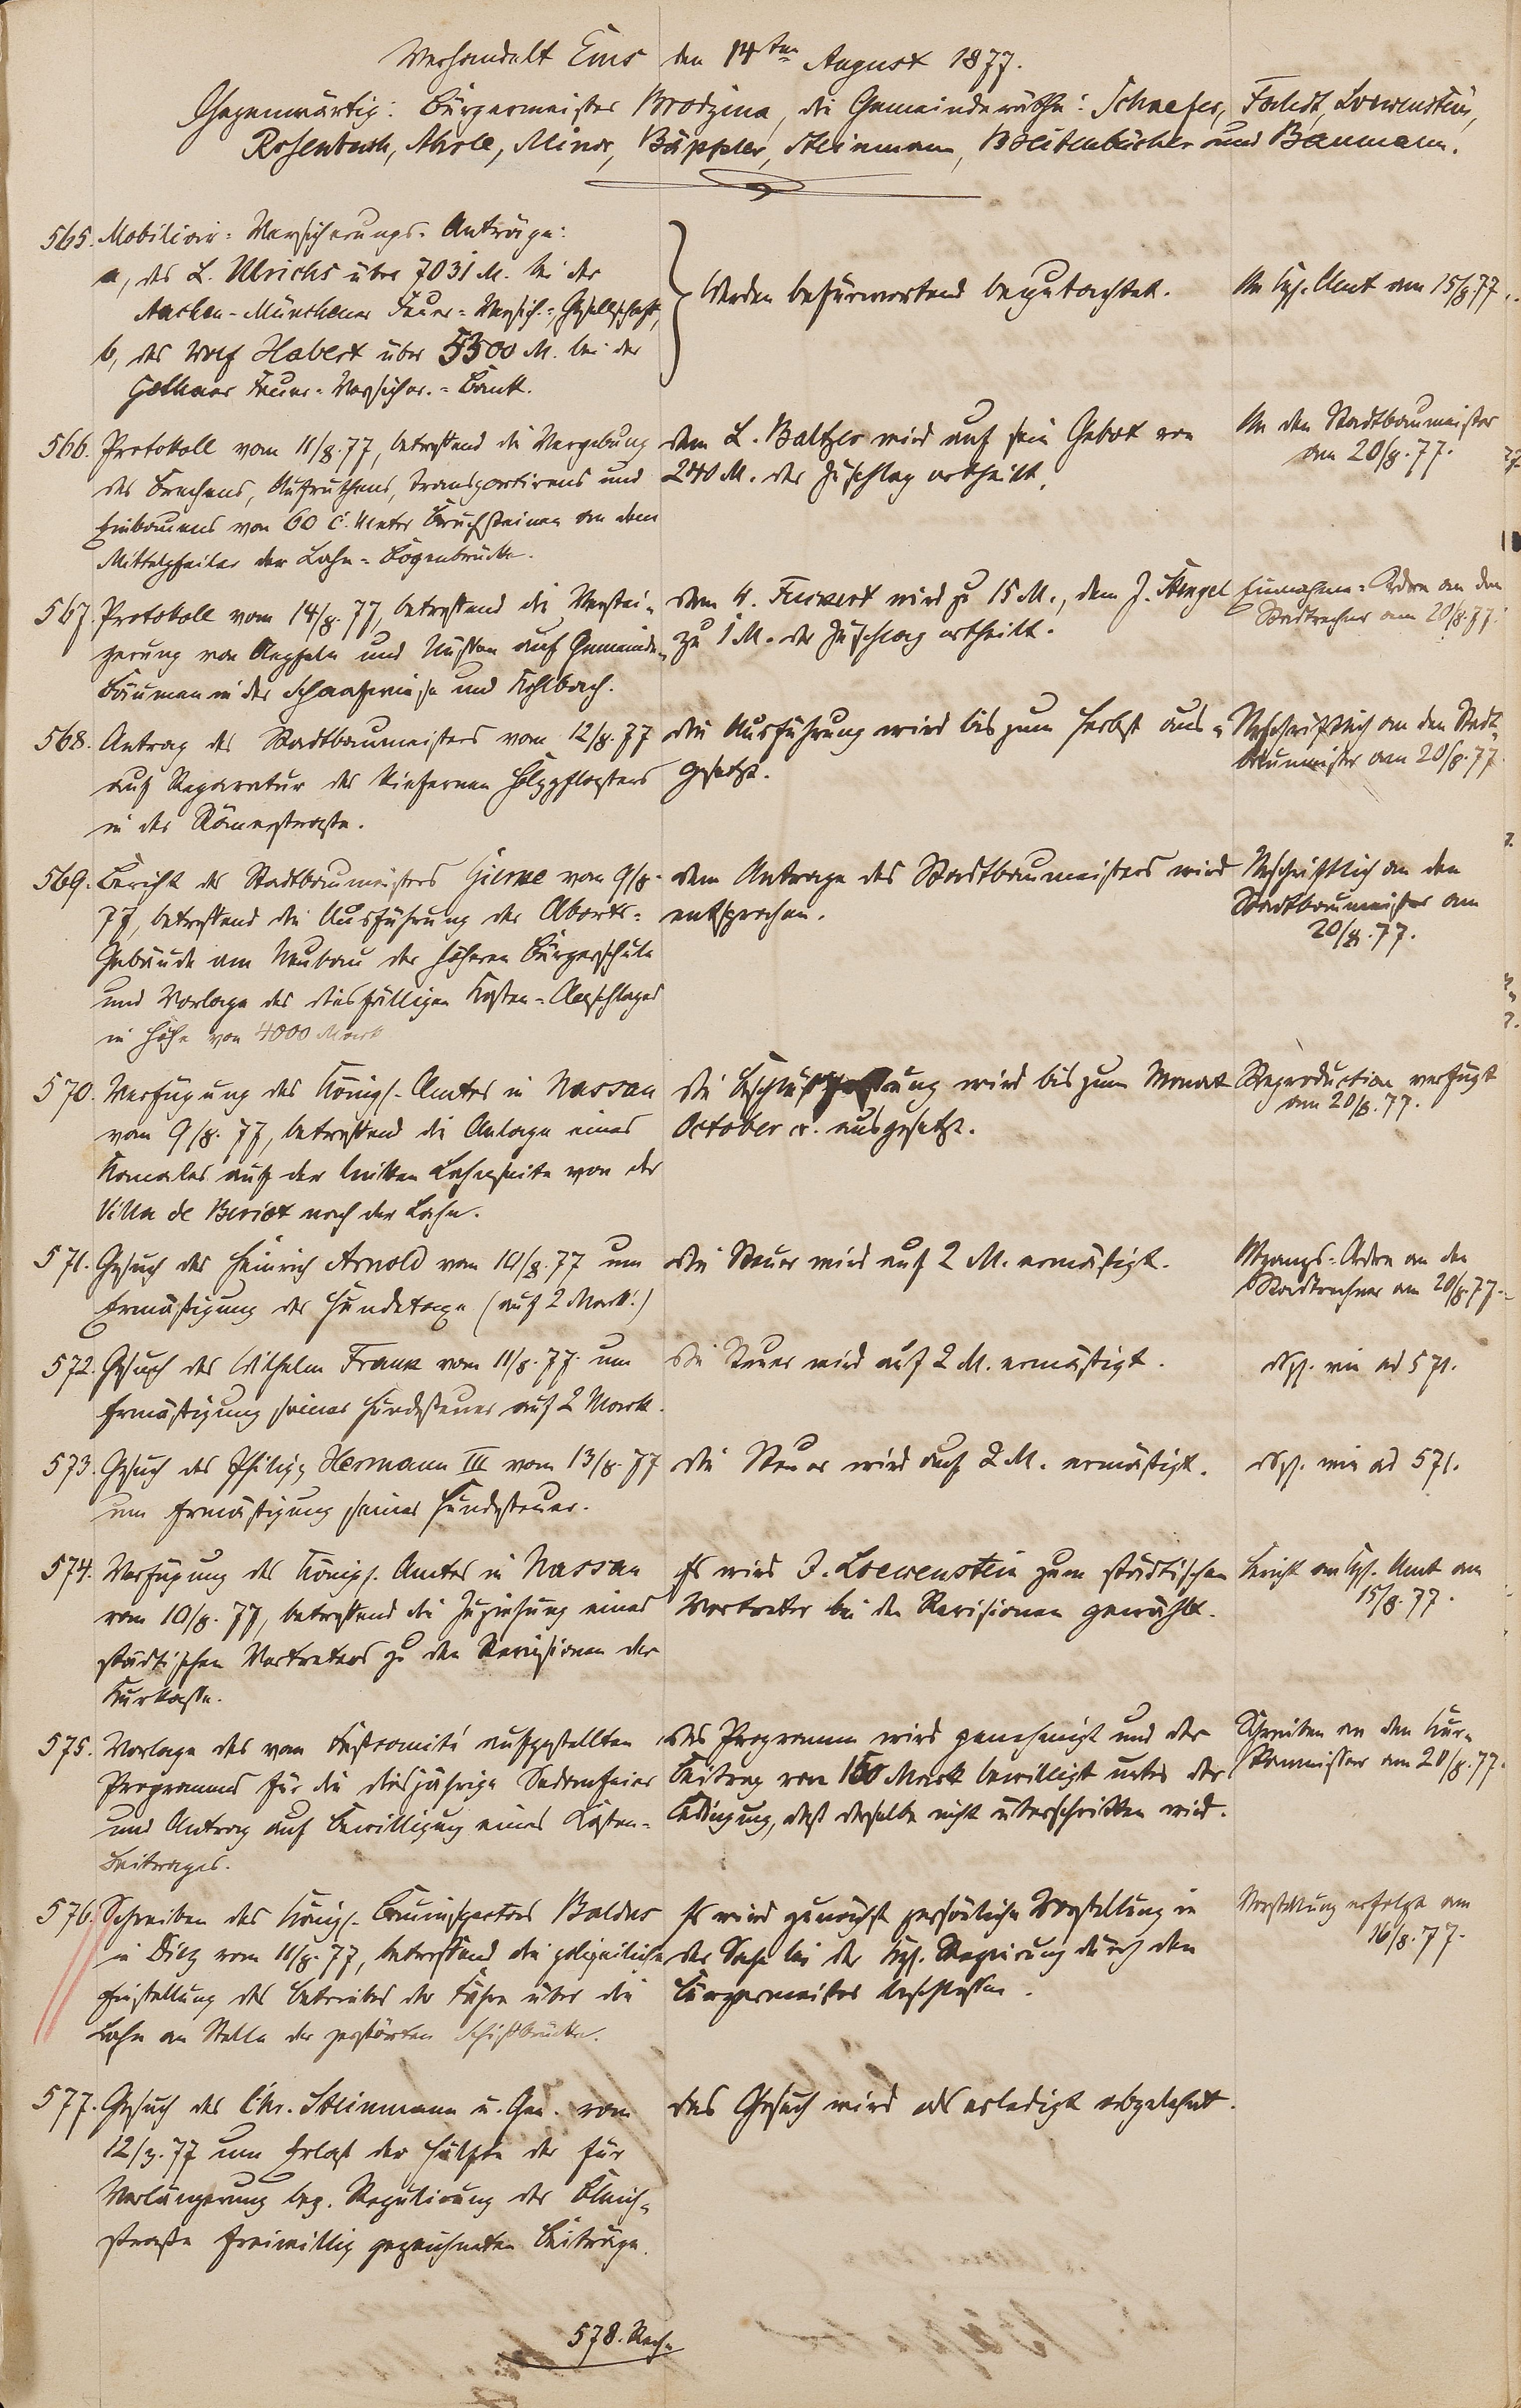 Verhandelt Ems den 14ten August 1877.
Gegenwärtig: Bürgermeister Brodzina, die Gemeinderäthe: Schaefer, Fachst, Loewenstein,
Rosenbach, Minor, Bäppler, Steinmann, Breitenbücher und Baumann.
565. Mobiliar-Versicherungs-Anträge:
a, des L. Ulrichs über 7031 M. bei der
Aachen-Münchener Feuer-Versich.-Gesellschaft,
b, des Wolf Habert über 5500 M. bei der
Gothaer Feuer-Versicher.-Bank.
Werden befürwortend begutachtet.
An Kgl. Amt am 15/8.77.
566. Protokoll vom 11/8.77, betreffend die Vergebung
des Brechens, Aufruthens, Transportirens und
Einbauens von 60 c. Meter Bruchsteinen an dem
Mittelpfeiler der Lahn-Bogenbrücke.
Dem L. Baltzer wird auf sein Gebot von
240 M. der Zuschlag ertheilt.
An den Stadtbaumeister
am 20/8.77.
567. Protokoll vom 14/8.77, betreffend die Verstei-
gerung von Aepfeln und Nüssen auf Gemeinde-
Bäumen in der Schaafwiese und Kohlbach.
Dem H. wird zu 15 M., dem J. Stengel
zu 1 M. der Zuschlag ertheilt.
Einnahme-Ordre an den
Stadtrechner am 20/8.77.
568. Antrag des Stadtbaumeisters vom 12/8.77
auf Reparatur des kiefernen Holzpflasters
in der Römerstraße.
Die Ausführung wird bis zum Herbst aus-
gesetzt.
Abschriftlich an den Stadt-
baumeister am 20/8.77.
569. Bericht des Stadtbaumeisters Gierne vom 9/8.
77, betreffend die Ausführung der Aborts-
Gebäude am Neubau der höheren Bürgerschule
und Vorlage des diesfälligen Kosten-Anschlages
in Höhe von 4000 Mark
Dem Antrage des Stadtbaumeisters wird
entsprochen.
Abschriftlich an den
Stadtbaumeister am
20/8.77.
570. Verfügung des Königl. Amtes in Nassau
vom 9/8.77, betreffend die Anlage eines
Kanales auf der linken Lahnseite von der
Villa de Beriot nach der Lahn.
Die Beschlußfassung wird bis zum Monat
October cr. ausgesetzt.
Reproduction verfügt
am 20/8.77.
571. Gesuch des Heinrich Arnold vom 10/8.77 um
Ermäßigung der Hundetaxe (auf 2 Mark!)
Die Steuer wird auf 2 M. ermäßigt.
Abgangs-Ordre an den
Stadtrechner am 20/8.77.
572. Gesuch des Wilhelm Frank vom 11/8.77 um
Ermäßigung seiner Hundesteuer auf 2 Mark.
Die Steuer wird auf 2 M. ermäßigt.
Dsgl. wie ad 571.
573. Gesuch des Philipp Hermann III vom 13/8.77
um Ermäßigung seiner Hundesteuer.
Die Steuer wird auf 2 M. ermäßigt.
Dsgl. wie ad 571.
574. Verfügung des Königl. Amtes in Nassau
vom 10/8.77, betreffend die Zuziehung eines
städtischen Vertreters zu den Revisionen der
Kurkasse.
Es wird J. Loewenstein zum städtischen
Vertreter bei den Revisionen gewählt.
Bericht an Kgl. Amt am
15/8.77.
575. Vorlage des vom Festcomité aufgestellten
Programms für die diesjährige Sedanfeier
und Antrag auf Bewilligung eines Kosten-
Beitrages.
Das Programm wird genehmigt und der
Beitrag von 150 Mark bewilligt unter der
Bedingung, daß derselbe nicht überschritten wird.
Schreiben an den Kur-
kommissar am 20/8.77.
576. Schreiben des Königl. Bauinspectors Baldus
in Dietz vom 11/8.77, betreffend die polizeiliche
Einstellung des Betriebes der Fähre über die
Lahn an Stelle der zerstörten Schiffbrücke.
Es wird zunächst persönliche Vorstellung in
der Sache bei der Kgl. Regierung durch den
Bürgermeister beschlossen.
Vorstellung erfolgte am
16/8.77.
577. Gesuch des Chr. Steinmann u. Gen. vom
12/3.77 um Erlaß der Hälfte der für
Verlängerung bez. Regulirung der Bleich-
straße freiwillig gezeichneten Beiträge.
Das Gesuch wird als erledigt abgelehnt.
578. Rech-